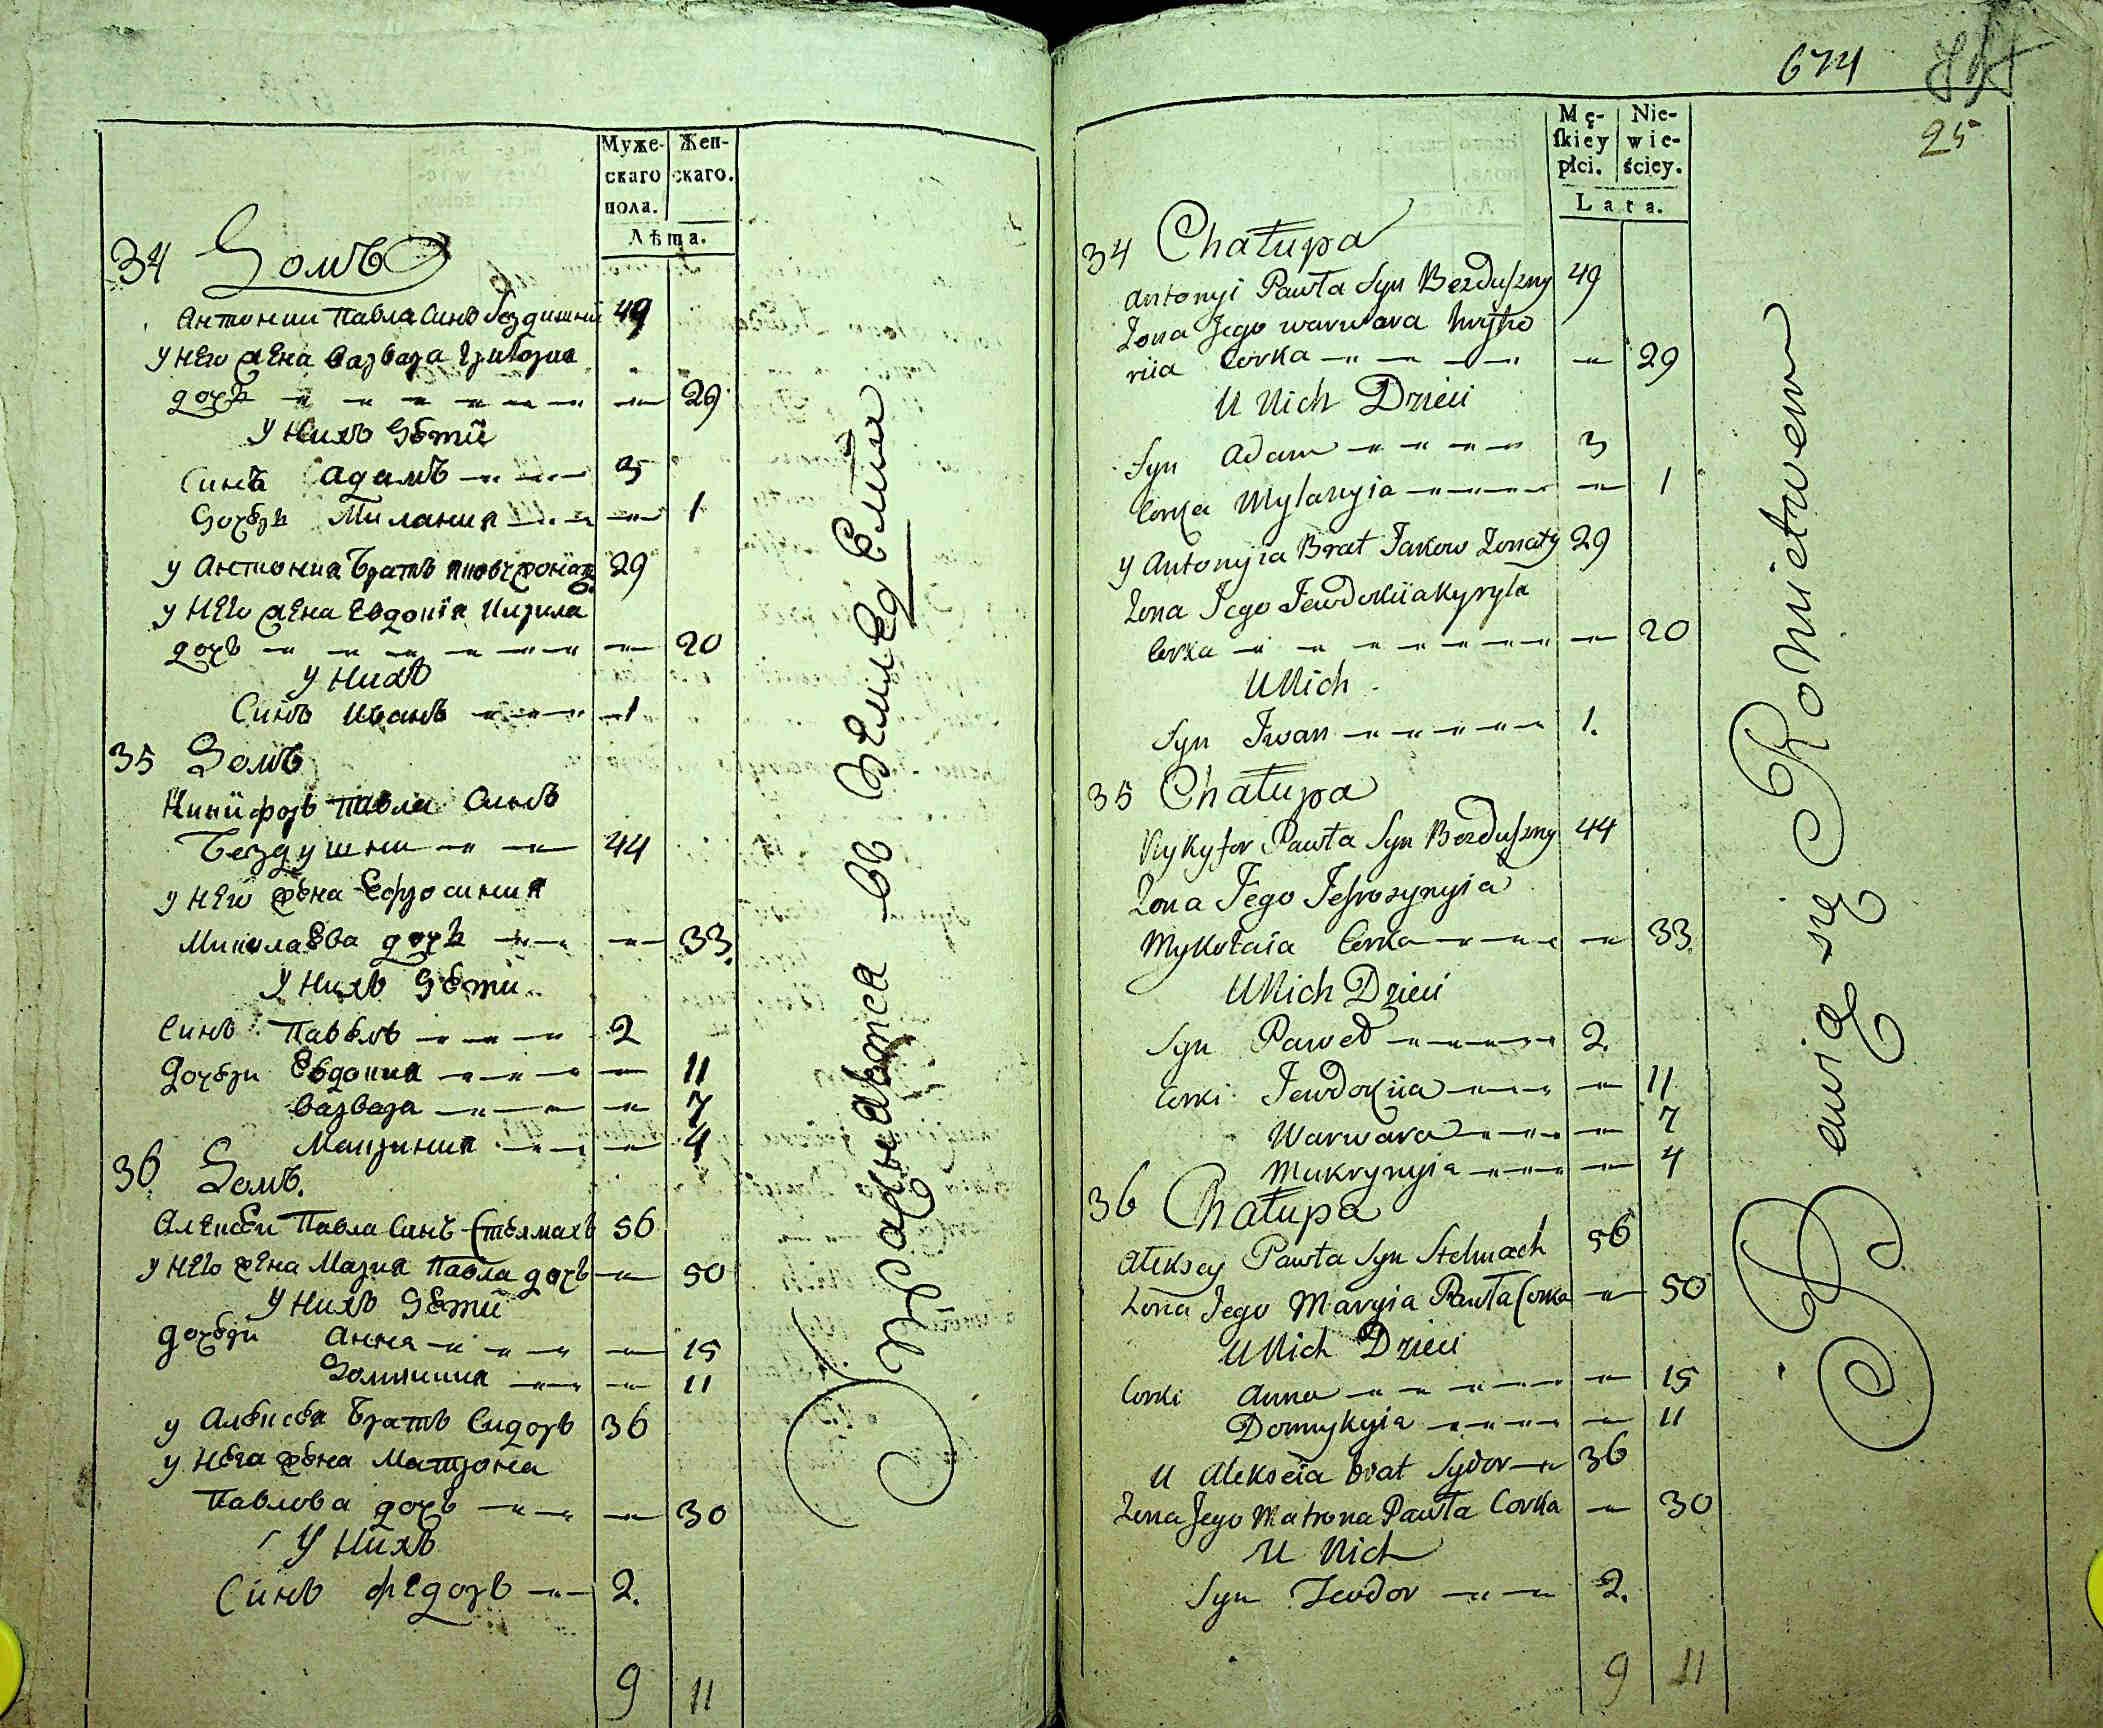 Муже-
скаго
пола.
Жен-
скаго.
Лѣта.
34 Домъ
Антоний Павла Синъ Бездушний 49
У Него жена Варвара Григория
дочь 29
У Нихъ Дети
Синъ Адамъ 3
Дочерь Милания 1
у Антония Братъ Яковъ жонат 29
у Него жена Евдокия Кирила
дочь 20
У Нихъ
Синъ Иванъ 1
35 Домъ
Никифоръ Павла Синъ
Бездушни 44
у Него жена Ефросиния
Миколаева дочь 33.
У Нихъ Дети
Синъ Павелъ 2
Дочери Евдокия 11
Варвара 7
Макриния 4
36 Домъ.
Алексеи Павла Синъ Стелмахъ 56
у Него жена Мария Павла дочь 50
У Нихъ Дети
Дочери Анна 15
Домникия 11
у Алексея Братъ Сидоръ 36
у Него жена Матрона
Павлова дочь 30
У Нихъ
Синъ Федоръ 2.
9 11
Упражнаются въ Земледелии
674
25
Mę-
ſkiey
płci.
Nie-
wie-
ściey.
Lata.
34 Chałupa
Antonyi Pawła Syn Bezduſzny 49
Zona Jego Warwara Hryho
riia Corka 29
U Nich Dzieci
Syn Adam 3
Corka Mylanyia 1
y Antonyia Brat Jakow Zonaty 29
Zona Jego Jewdokiia Kyryła
Corka 20
U Nich
Syn Iwan 1.
35 Chałupa
Nykyfor Pawła Syn Bezduſzny 44
Zona Jego Jefrozynyia
Mykołaia Corka 33
U Nich Dzieci
Syn Paweł 2.
Corki Jewdokiia 11
Warwara 7
Makrynyia 4
36 Chałupa
Aleksey Pawła Syn Stelmach 56
Zona Jego Maryia Pawła Corka 50
U Nich Dzieci
Corki Anna 15
Domnykyia 11
U Alekseia brat Sydor 36
Zona Jego Matrona Pawła Corka 30
U Nich
Syn Teodor 2.
9 11
Bawią się Rolnictwem